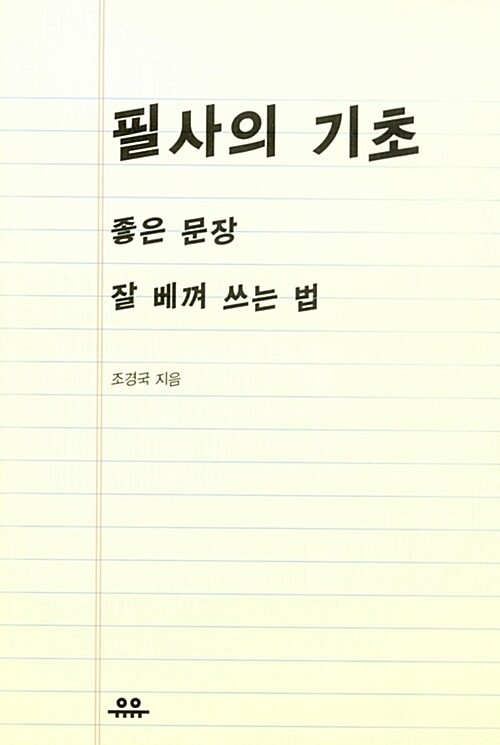 필사의 기초
좋은 문장
잘 베껴 쓰는 법
조경국 지음
유유